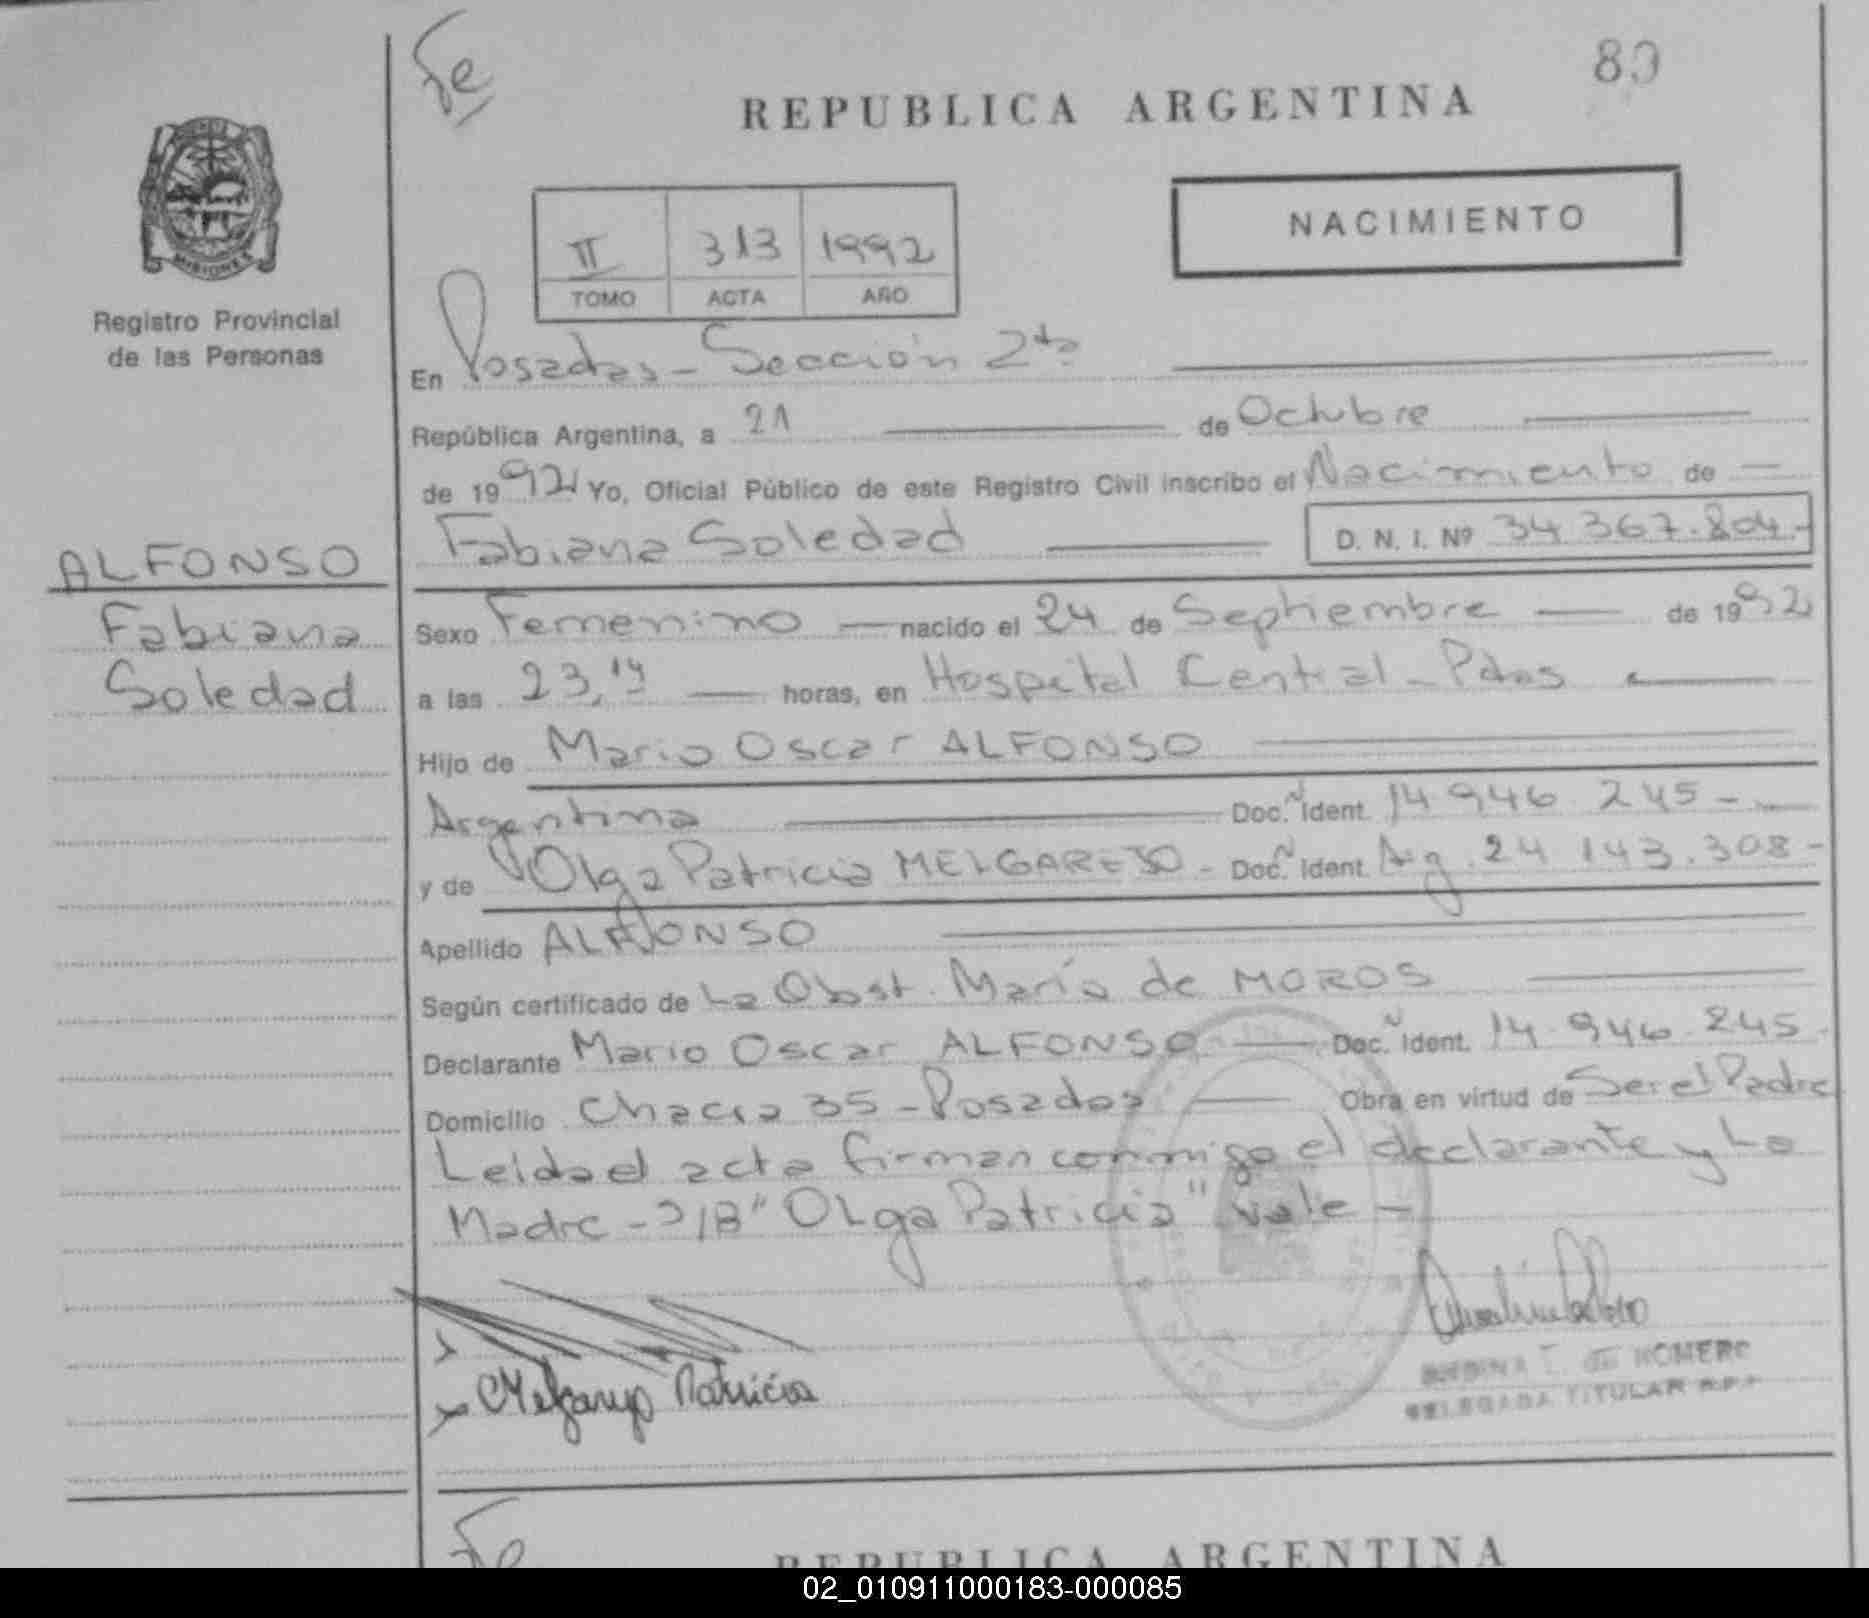 Fe
80
REPUBLICA ARGENTINA
MISIONES
Registro Provincial
de las Personas
II 313 1992
TOMO ACTA AÑO
NACIMIENTO
En Posadas - Sección 2da
República Argentina, a 21 de Octubre
de 1992 Yo, Oficial Público de este Registro Civil inscribo el Nacimiento de —
Fabiana Soledad D. N. I. Nº 34 367.804.-
ALFONSO
Fabiana
Soledad
Sexo Femenino — nacido el 24 de Septiembre — de 1992
a las 23,14 — horas, en Hospital Central - Pdas
Hijo de Mario Oscar ALFONSO
Argentina Doc. Ident. 14 946 245 -
y de Olga Patricia MELGAREJO - Doc. Ident. Arg. 24 143.308 -
Apellido ALFONSO
Según certificado de La Obst. María de MOROS
Declarante Mario Oscar ALFONSO — Doc. Ident. 14 946 245 -
Domicilio Chacra 35 - Posadas — Obra en virtud de Ser el Padre
Leida el acta firman conmigo el declarante y La
Madre - "Olga Patricia" vale -
Melgarejo Patricia
DE ROMERO
DELEGADA TITULAR R.P.P.
Fe
REPUBLICA ARGENTINA
02_010911000183-000085